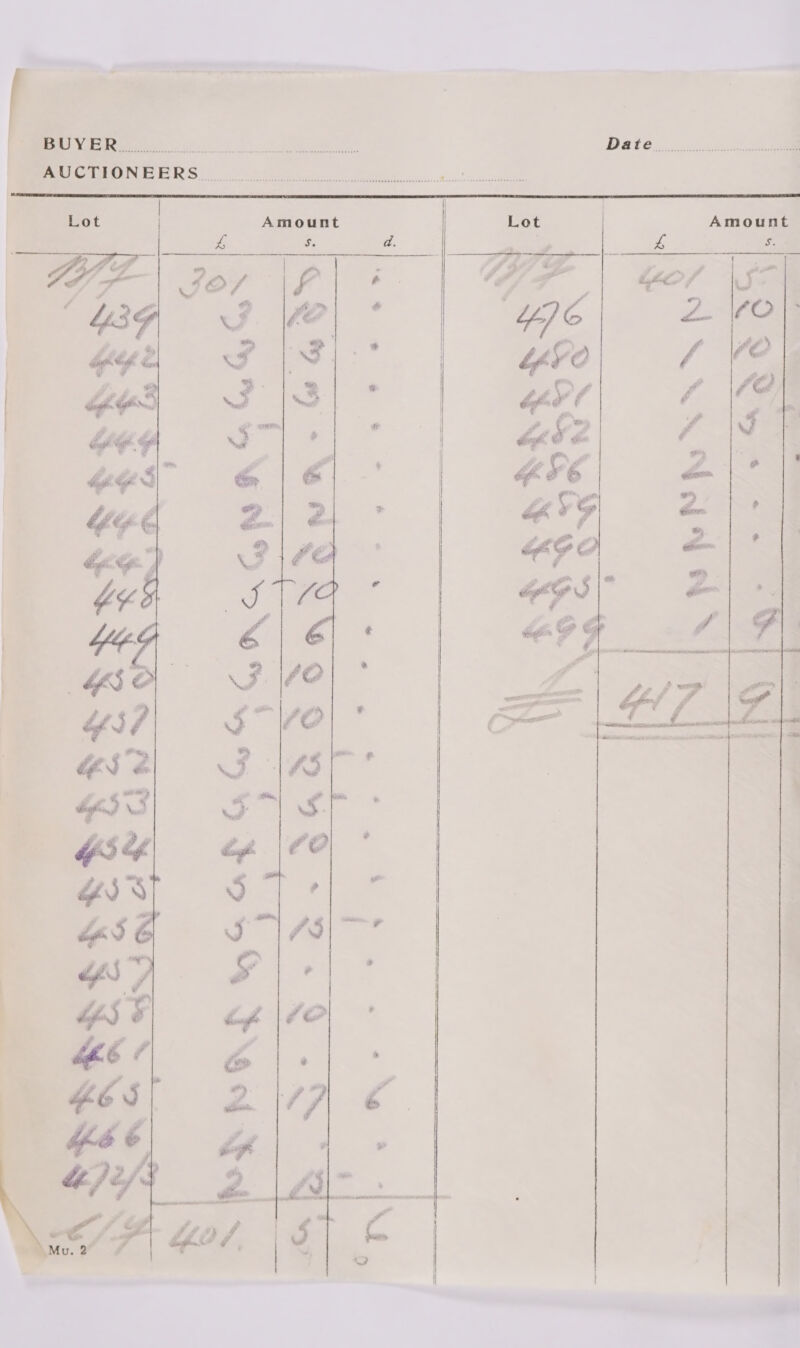 BUYER
Date
AUCTIONEERS
Lot Amount
£ s. d.
B/F 301 8 .
439 3 10 .
442 3 3 .
443 3 3 .
444 5 . .
445 6 6 .
446 2 2 .
447 3 10 .
448 5 10 .
449 6 6 .
450 3 10 .
451 5 10 .
452 3 15 .
453 5 5 .
454 4 10 .
455 5 . -
456 5 15 .
457 8 . .
458 4 10 .
461 6 . .
465 2 17 6
466 4 . .
472/3 2 15 .
C/F 401. 5 6
Mu. 2
Lot Amount
£ s.
B/F 401 5
476 2 10
480 1 10
481 1 10
482 1 5
486 2 .
489 2 .
490 2 .
495 2 .
499 1 9
£ 417 9